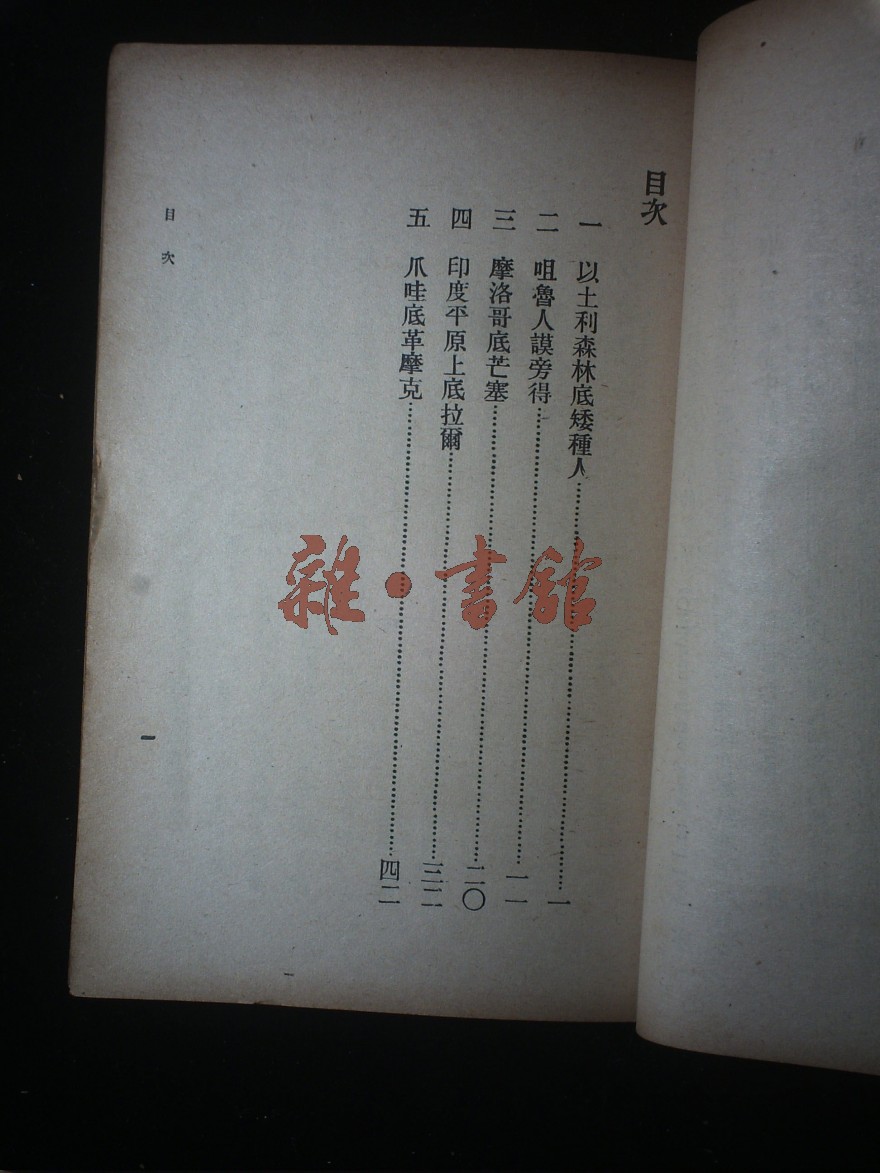 目次
一 以土利森林底矮種人……一
二 咀魯人謨旁得……一一
三 摩洛哥底芒塞……二〇
四 印度平原上底拉爾……三二
五 爪哇底革摩克……四二
目次
一
雜·書館